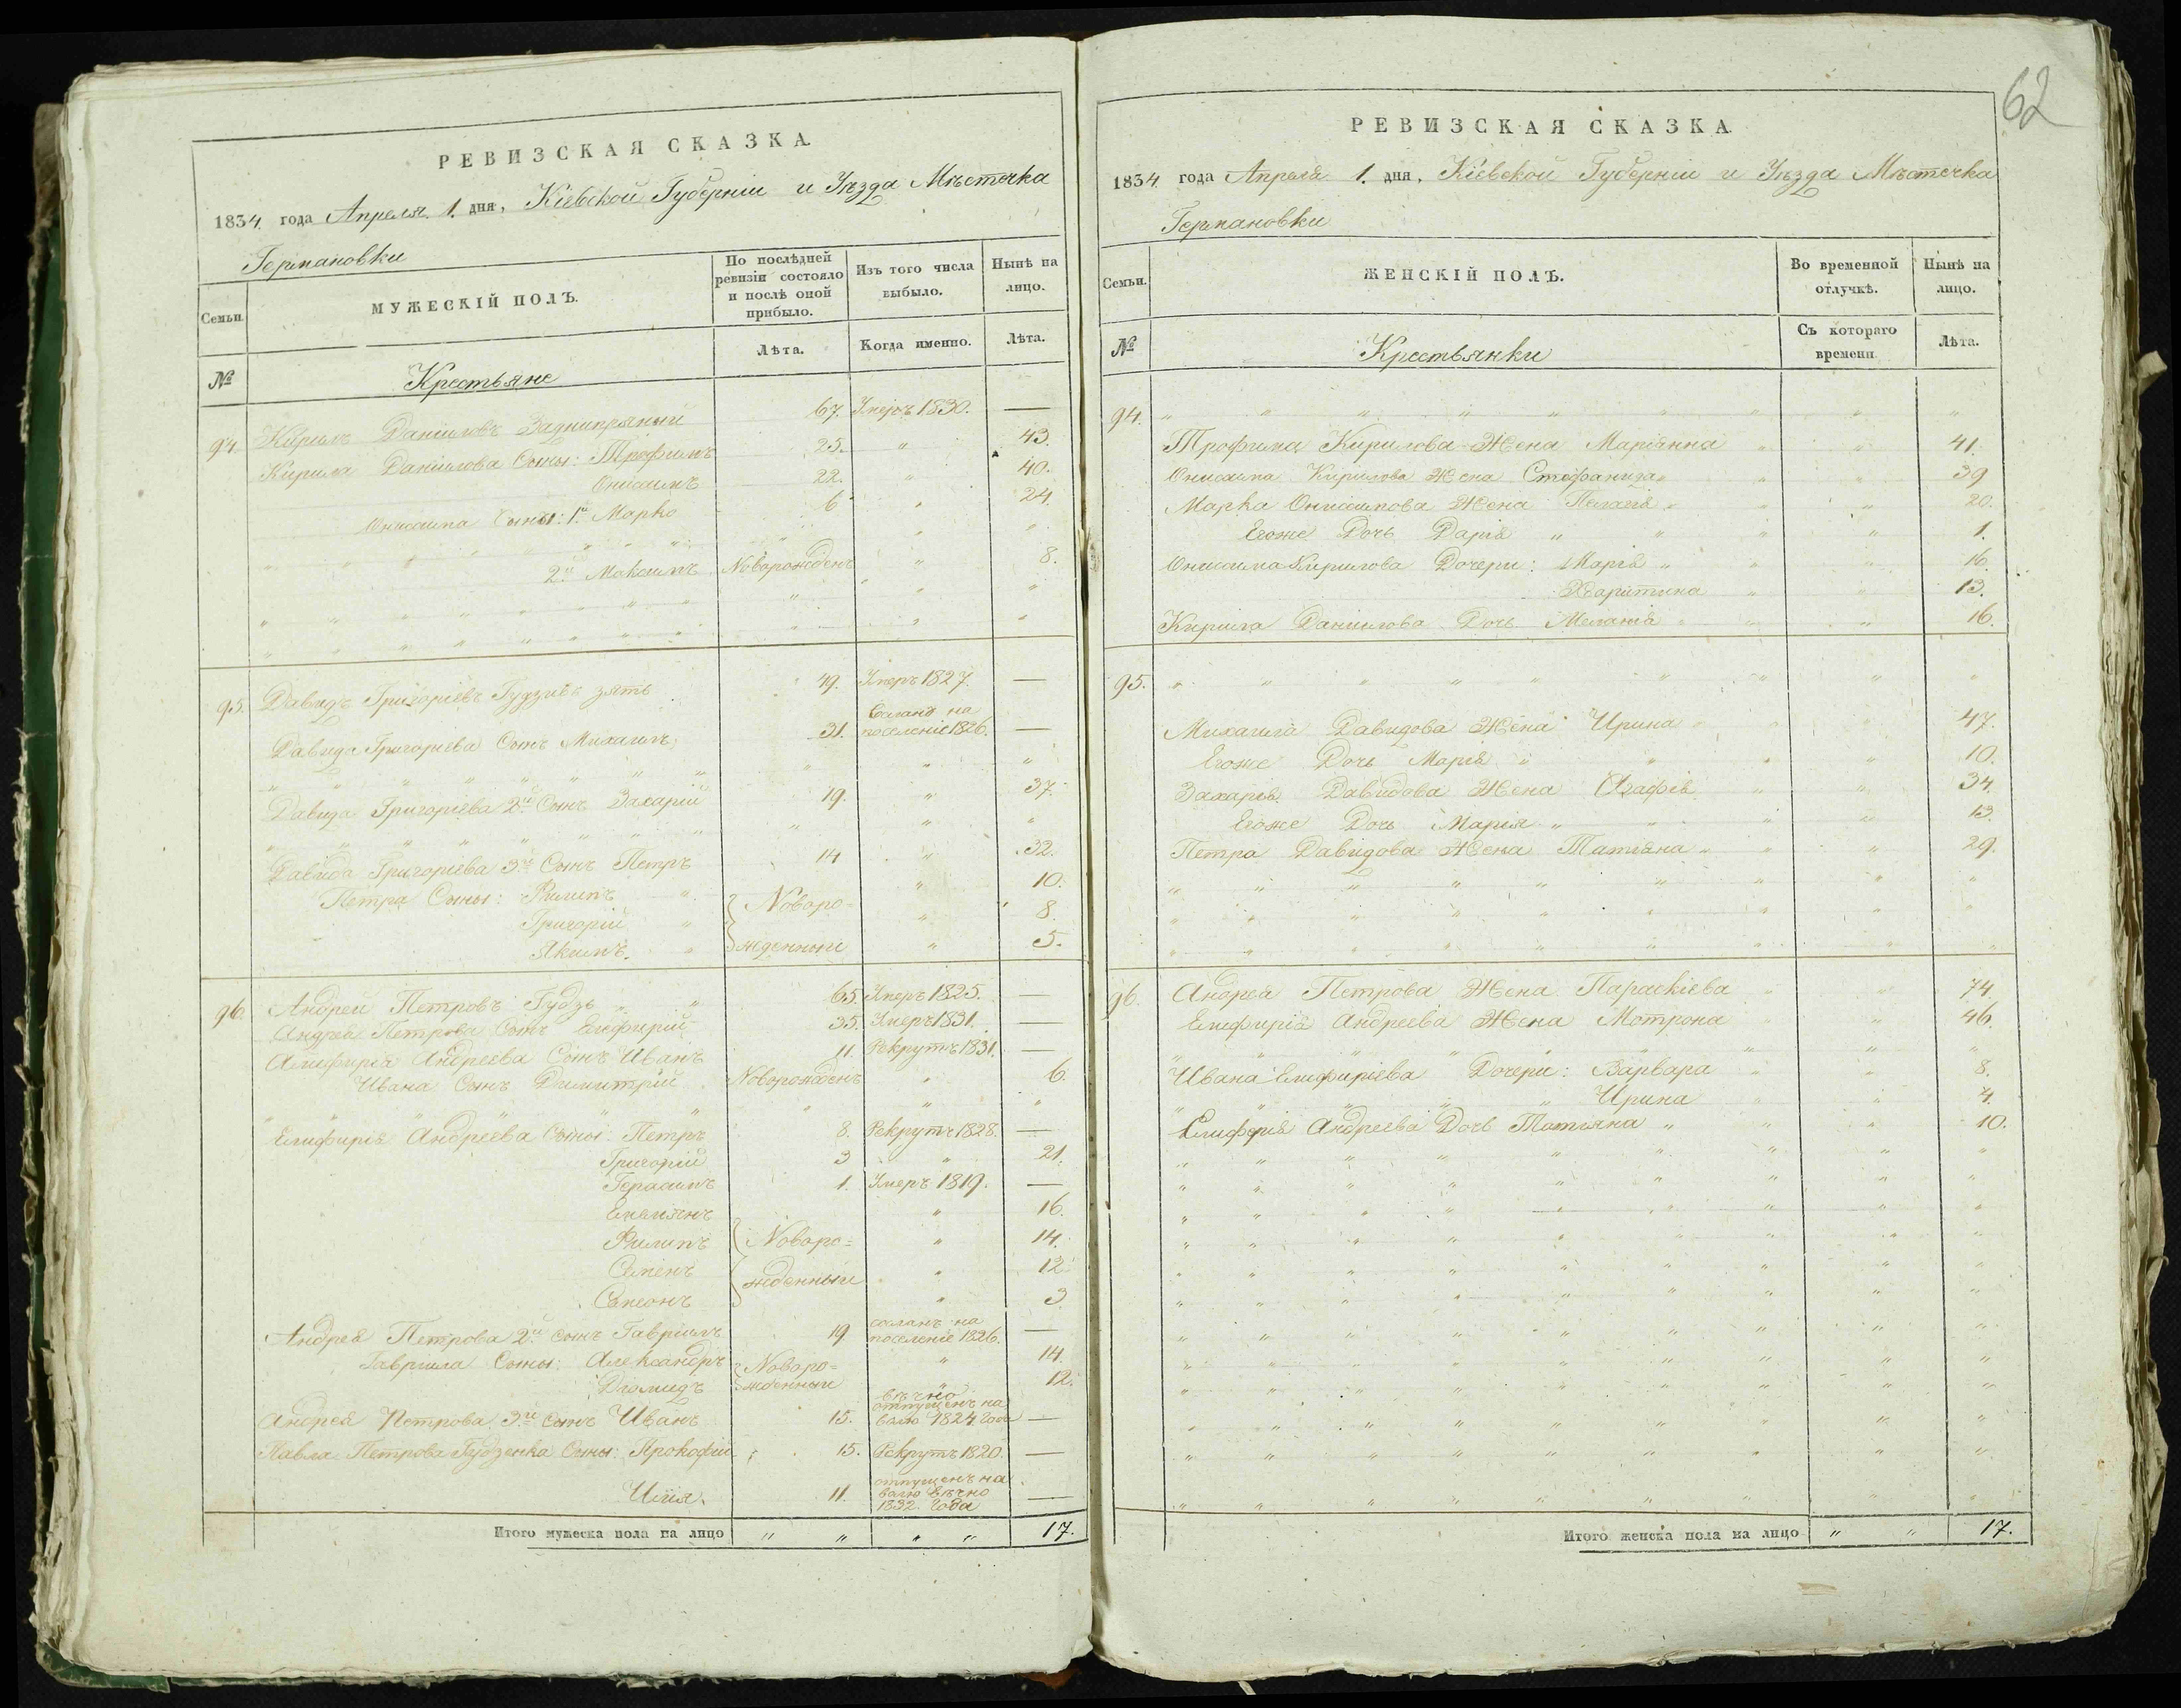 62
РЕВИЗСКАЯ СКАЗКА.
1834. года Апреля 1. дня, Кіевской Губерніи и Уѣзда Мѣстечка
Германовки
Семьи.
МУЖЕСКІЙ ПОЛЪ.
По послѣдней
ревизіи состояло
и послѣ оной
прибыло.
Изъ того числа
выбыло.
Нынѣ на
лицо.
№
Крестьяне
Лѣта.
Когда именно.
Лѣта.
94. Кирилъ Даніиловъ Заднипряный 67. Умеръ 1830. —
Кирила Даніилова Сыны: Трофимъ 25. " 43.
Онисимъ 22. " 40.
Онисима Сыны: 1й Марко 6 " 24.
2й Максимъ Новорожденъ " 8.
95. Давидъ Григоріевъ Гудзивъ зять 49. Умеръ 1827. —
Давида Григоріева Сынъ Михаилъ 31. Сосланъ на поселеніе 1826. —
Давида Григоріева 2й Сынъ Захарій 19. " 37.
Давида Григоріева 3й Сынъ Петръ 14 " 32.
Петра Сыны: Филипъ " Новоро= " 10.
Григорій " " 8.
Якимъ " жденныи " 5.
96. Андрей Петровъ Гудзь " " 65. Умеръ 1825. —
Андрея Петрова Сынъ Елифирій 35. Умеръ 1831. —
Алифирія Андреева Сынъ Иванъ 11. Рекрутъ 1831. —
Ивана Сынъ Димитрій Новорожденъ " 6.
Елифирія Андреева Сыны: Петръ 8. Рекрутъ 1828. —
Григорій 3 " 21.
Герасимъ 1. Умеръ 1819. —
Емелянъ " 16.
Филипъ Новоро= " 14.
Семенъ жденныи " 12.
Самсонъ " 3.
Андрея Петрова 2й сынъ Гавріилъ 19 сосланъ на поселеніе 1826. —
Гавріила Сыны: Александръ Новоро= " 14.
Діомидъ жденныи " 12.
Андрея Петрова 3й сынъ Иванъ 15. вѣчно отпущенъ на волю 1824. года —
Павла Петрова Гудзенка Сыны: Прокофій 15. Рекрутъ 1820. —
Илія. 11. отпущенъ на волю вѣчно 1832 года —
Итого мужеска пола на лицо " " " " 17.
РЕВИЗСКАЯ СКАЗКА.
1834. года Апреля 1. дня, Кіевской Губерніи и Уѣзда Мѣстечка
Германовки
Семьи.
ЖЕНСКІЙ ПОЛЪ.
Во временной
отлучкѣ.
Нынѣ на
лицо.
№
Крестьянки
Съ котораго
времени
Лѣта.
94.
Трофима Кирилова Жена Маріянна " " 41.
Онисима Кирилова Жена Стефанида " " 39
Марка Онисимова Жена Пелагія " " 20.
Егоже Дочь Дарія " " 1.
Онисима Кирилова Дочери: Марія " " 16.
Харитина " " 13.
Кирила Даніилова Дочь Меланія " " 16.
95.
Михаила Давидова Жена Ирина " " 47.
Егоже Дочь Марія " " 10.
Захарія Давидова Жена Агафія " " 34.
Егоже Дочь Марія " " 13.
Петра Давидова Жена Татіяна " " 29.
96. Андрея Петрова Жена Параскіева " " 74.
Елифирія Андреева Жена Мотрона " " 46.
Ивана Елифиріева Дочери: Варвара " " 8.
Ирина " " 4.
Елиферія Андреева Дочь Татіяна " " 10.
Итого женска пола на лицо " " 17.